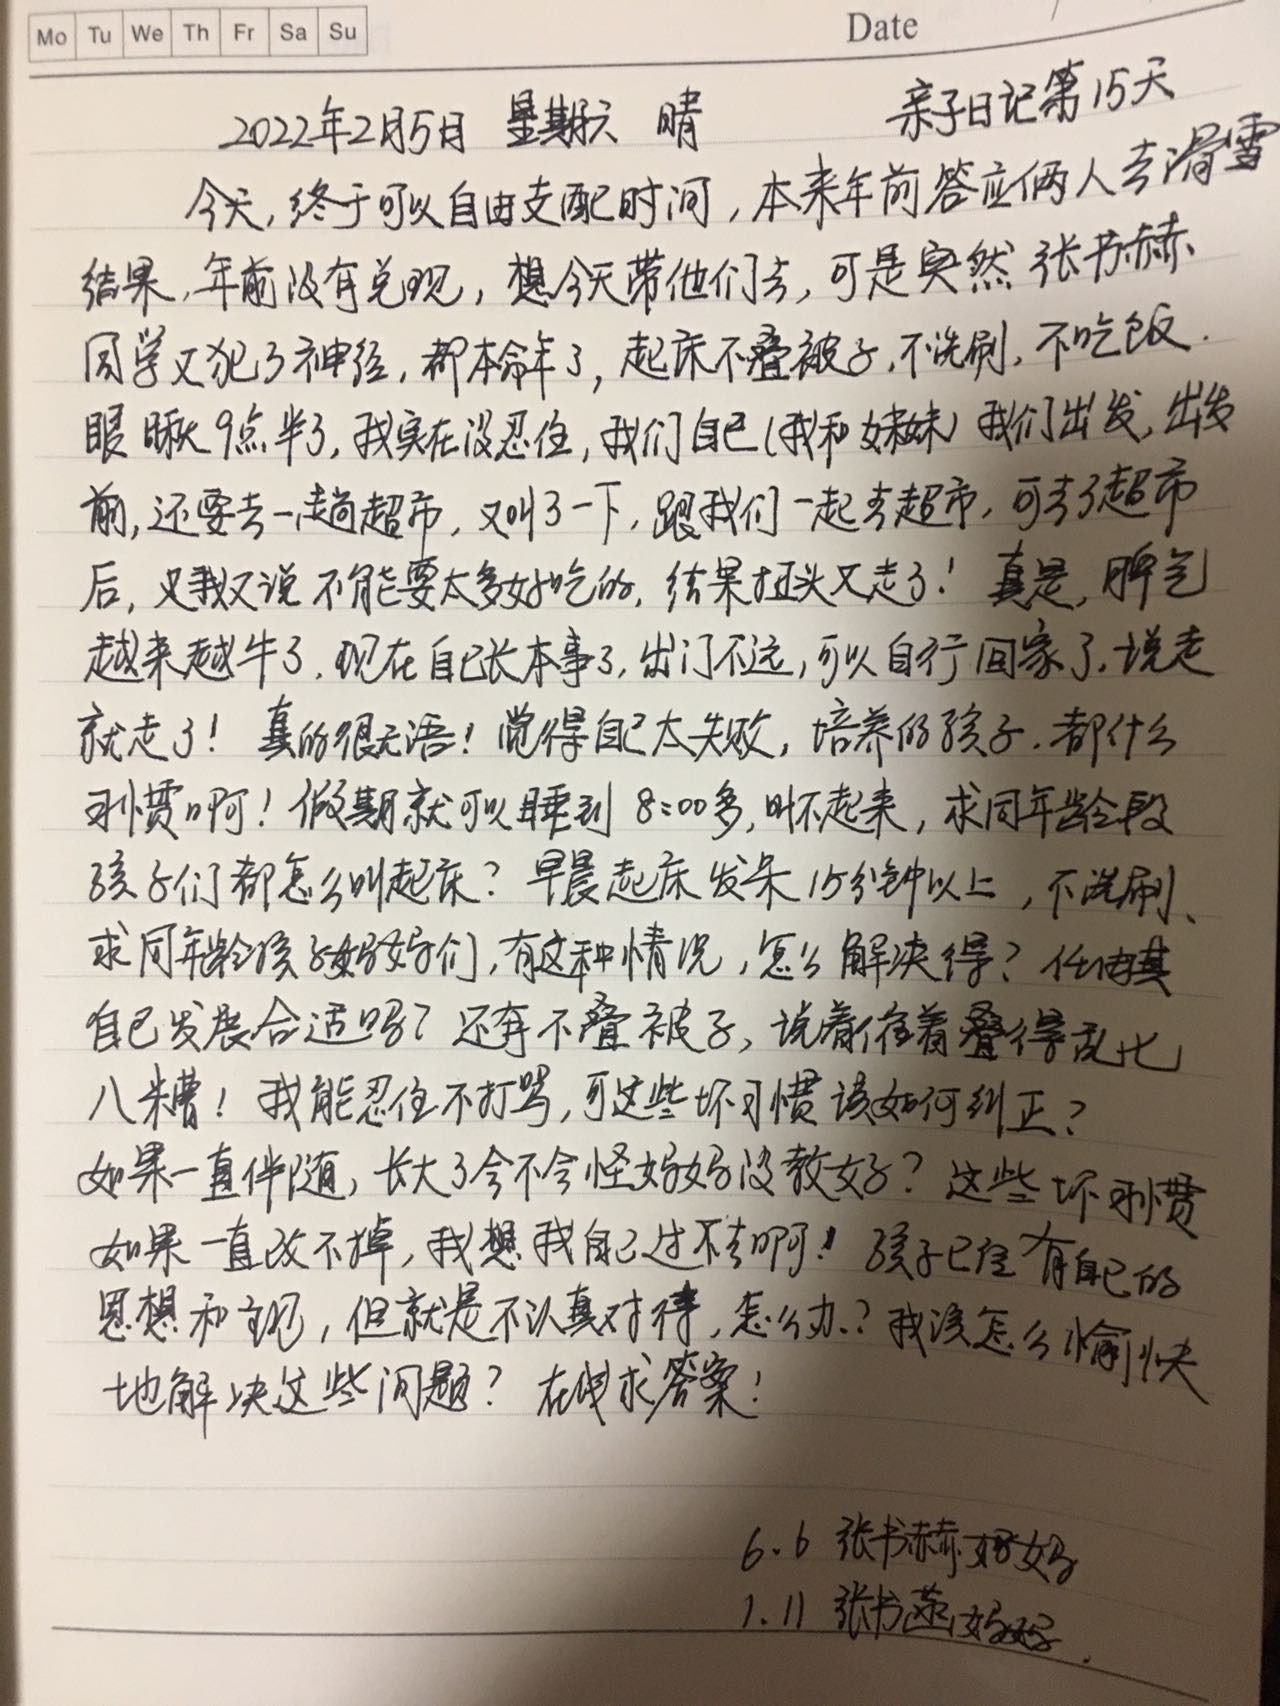 Mo Tu We Th Fr Sa Su
Date
2022年2月5日 星期六 晴 亲子日记第15天
今天,终于可以自由支配时间,本来年前答应俩人去滑雪
结果,年前没有兑现,想今天带他们去,可是突然张书赫
同学又犯了神经,都本命年了,起床不叠被子,不洗刷,不吃饭.
眼瞅9点半了,我实在没忍住,我们自己(我和妹妹)我们出发,出发
前,还要去一趟超市,又叫了一下,跟我们一起去超市,可去了超市
后,又我又说不能要太多好吃的,结果扭头又走了!真是,脾气
越来越牛了,现在自己长本事了,出门不远,可以自行回家了,说走
就走了!真的很无语!觉得自己太失败,培养的孩子,都什么
习惯啊!假期就可以睡到8:00多,叫不起来,求同年龄段
孩子们都怎么叫起床?早晨起床发呆15分钟以上,不洗刷、
求同年龄孩子妈妈们,有这种情况,怎么解决得?任由其
自己发展合适吗?还有不叠被子,说着 着叠得乱七
八糟!我能忍住不打骂,可这些坏习惯该如何纠正?
如果一直伴随,长大了会不会怪妈妈没教好?这些坏习惯
如果一直改不掉,我想我自己过不去啊!孩子已经有自己的
思想和主见,但就是不认真对待,怎么办?我该怎么愉快
地解决这些问题?在线求答案!
6.6 张书赫妈妈
1.11 张书 妈妈.